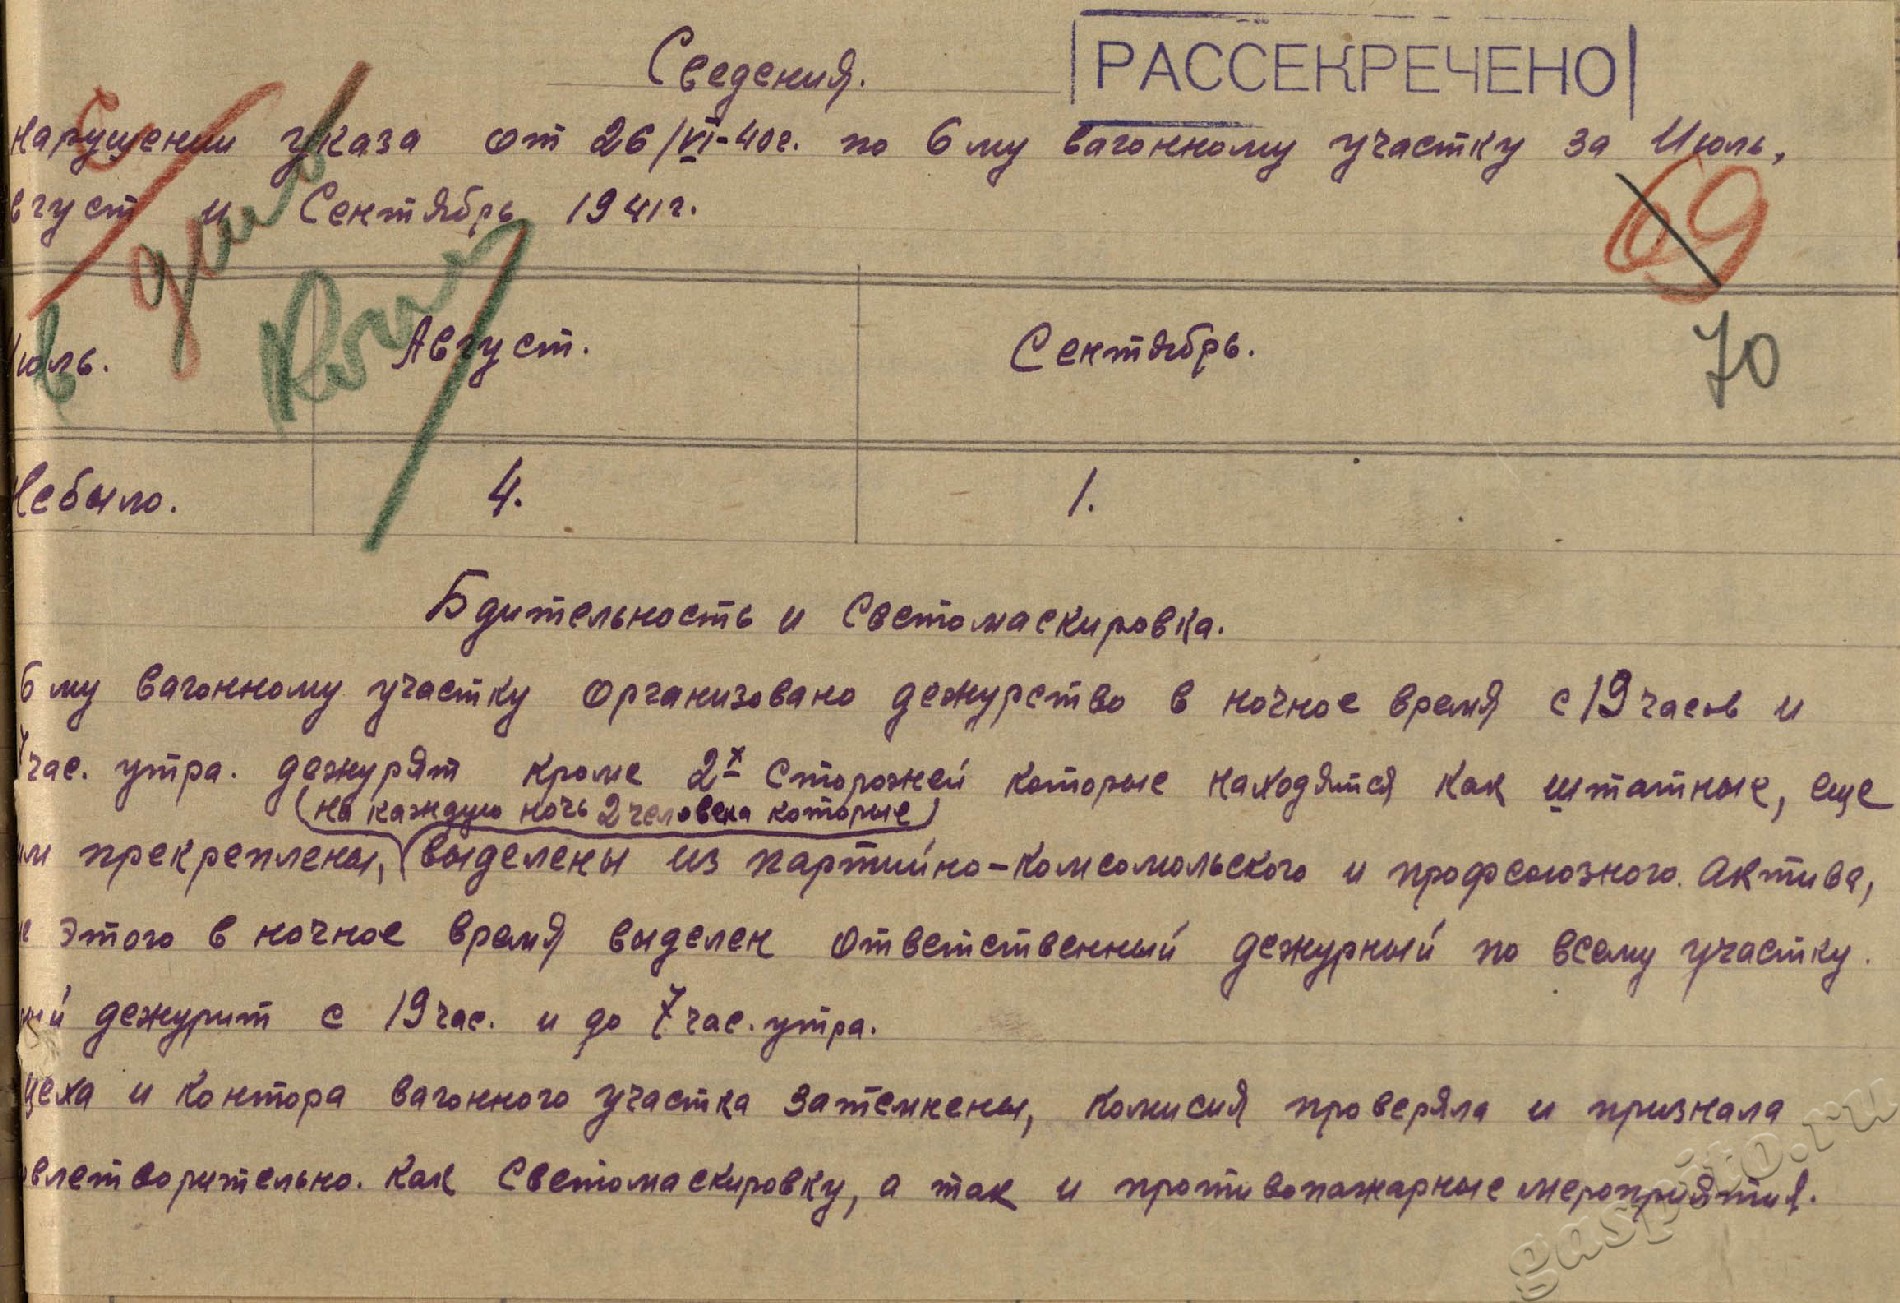 Сведения.
РАССЕКРЕЧЕНО
нарушении указа от 26/VI-40г. по 6му вагонному участку за Июль,
вгуст и Сентябрь 1941г.
69
юль. Август. Сентябрь.
70
Небыло. 4. 1.
Бдительность и Светомаскировка.
6му вагонному участку организовано дежурство в ночное время с 19 часов и
7 час. утра. дежурят кроме 2х сторожей которые находятся как штатные, еще
(на каждую ночь 2 человека которые)
им прекреплены, выделены из партийно-комсомольского и профсоюзного актива,
этого в ночное время выделен ответственный дежурный по всему участку.
ый дежурит с 19 час. и до 7 час. утра.
цеха и контора вагонного участка затемнены, комисия проверяла и признала
овлетворительно. как Светомаскировку, а так и противопожарные мероприятия.
gaspito.ru